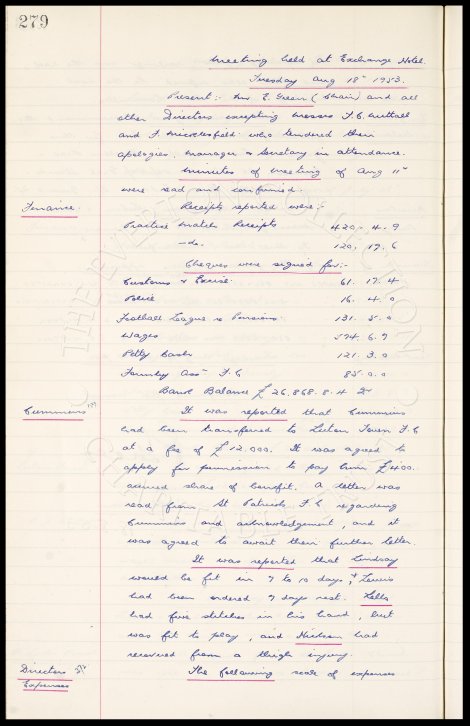 279
Meeting held at Exchange Hotel.
Tuesday Aug 18th 1953.
Present:- Mr. E. Green (Chair) and all
other Directors excepting Messrs F.C. Nuttall
and F. Micklesfield who tendered their
apologies. Manager & Secretary in attendance.
Minutes of meeting of Aug 11th
were read and confirmed.
Finance. Receipts reported were:-
Practice Match Receipts 420. 4. 9
-do- 120. 19. 6
Cheques were signed for:-
Customs & Excise. 61. 17. 4
Police 16. 4. 0
Football League re Pensions. 131. 5. 0
Wages 594. 6. 9
Petty Cash 121. 3. 0
F.C. 85. 0. 0
Bank Balance £26,868. 8. 4
Cummins It was reported that Cummins
had been transferred to Luton Town F.C
at a fee of £12,000. It was agreed to
apply for permission to pay him £400.
accrued share of benefit. A letter was
read from St Patricks F.C regarding
Cummins and acknowledgement, and it
was agreed to await their further letter.
It was reported that Lindsay
would be fit in 7 to 10 days, & Lewis
had been ordered 7 days rest.
had five stitches in his hand, but
was fit to play, and Hickson had
recovered from a thigh injury.
Directors Expenses The following scale of expenses